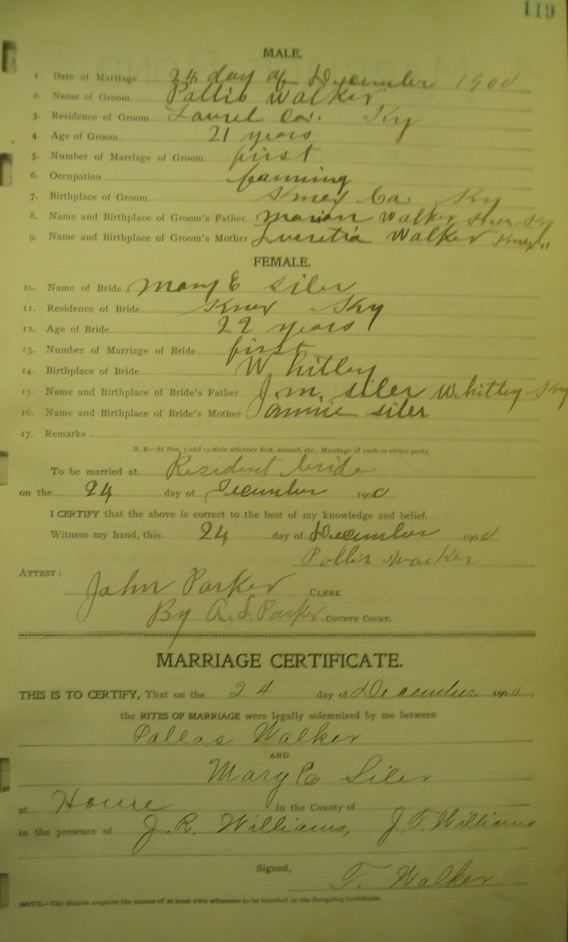 119
MALE.
1. Date of Marriage 24 day of December 1900
2. Name of Groom Pallis Walker
3. Residence of Groom Laurel Co. Ky
4. Age of Groom 21 years
5. Number of Marriage of Groom first
6. Occupation
7. Birthplace of Groom Knox Co. Ky
8. Name and Birthplace of Groom's Father Marion Walker Ky
9. Name and Birthplace of Groom's Mother Lucretia Walker Knox "
FEMALE.
10. Name of Bride Mary E Siler
11. Residence of Bride Knox Ky
12. Age of Bride 22 years
13. Number of Marriage of Bride first
14. Birthplace of Bride Whitley
15. Name and Birthplace of Bride's Father J. M. Siler Whitley Ky
16. Name and Birthplace of Bride's Mother Siler
17. Remarks
N. B.—At Nos. 5 and 13 state whether first, second, etc., Marriage of each or either party.
To be married at Resident bride
on the 24 day of December 1900
I CERTIFY that the above is correct to the best of my knowledge and belief.
Witness my hand, this 24 day of December 1900
Pollis Walker
ATTEST: John Parker CLERK
By A. S. Parker COUNTY COURT.
MARRIAGE CERTIFICATE.
THIS IS TO CERTIFY, That on the 24 day of December 1900,
the RITES OF MARRIAGE were legally solemnized by me between
Pallas Walker
AND
Mary E Siler
at House in the County of
in the presence of J. R. Williams, J. T. Williams
Signed,
T. Walker
NOTE.—The Statute requires the names of at least two witnesses to be inserted in the foregoing Certificate.